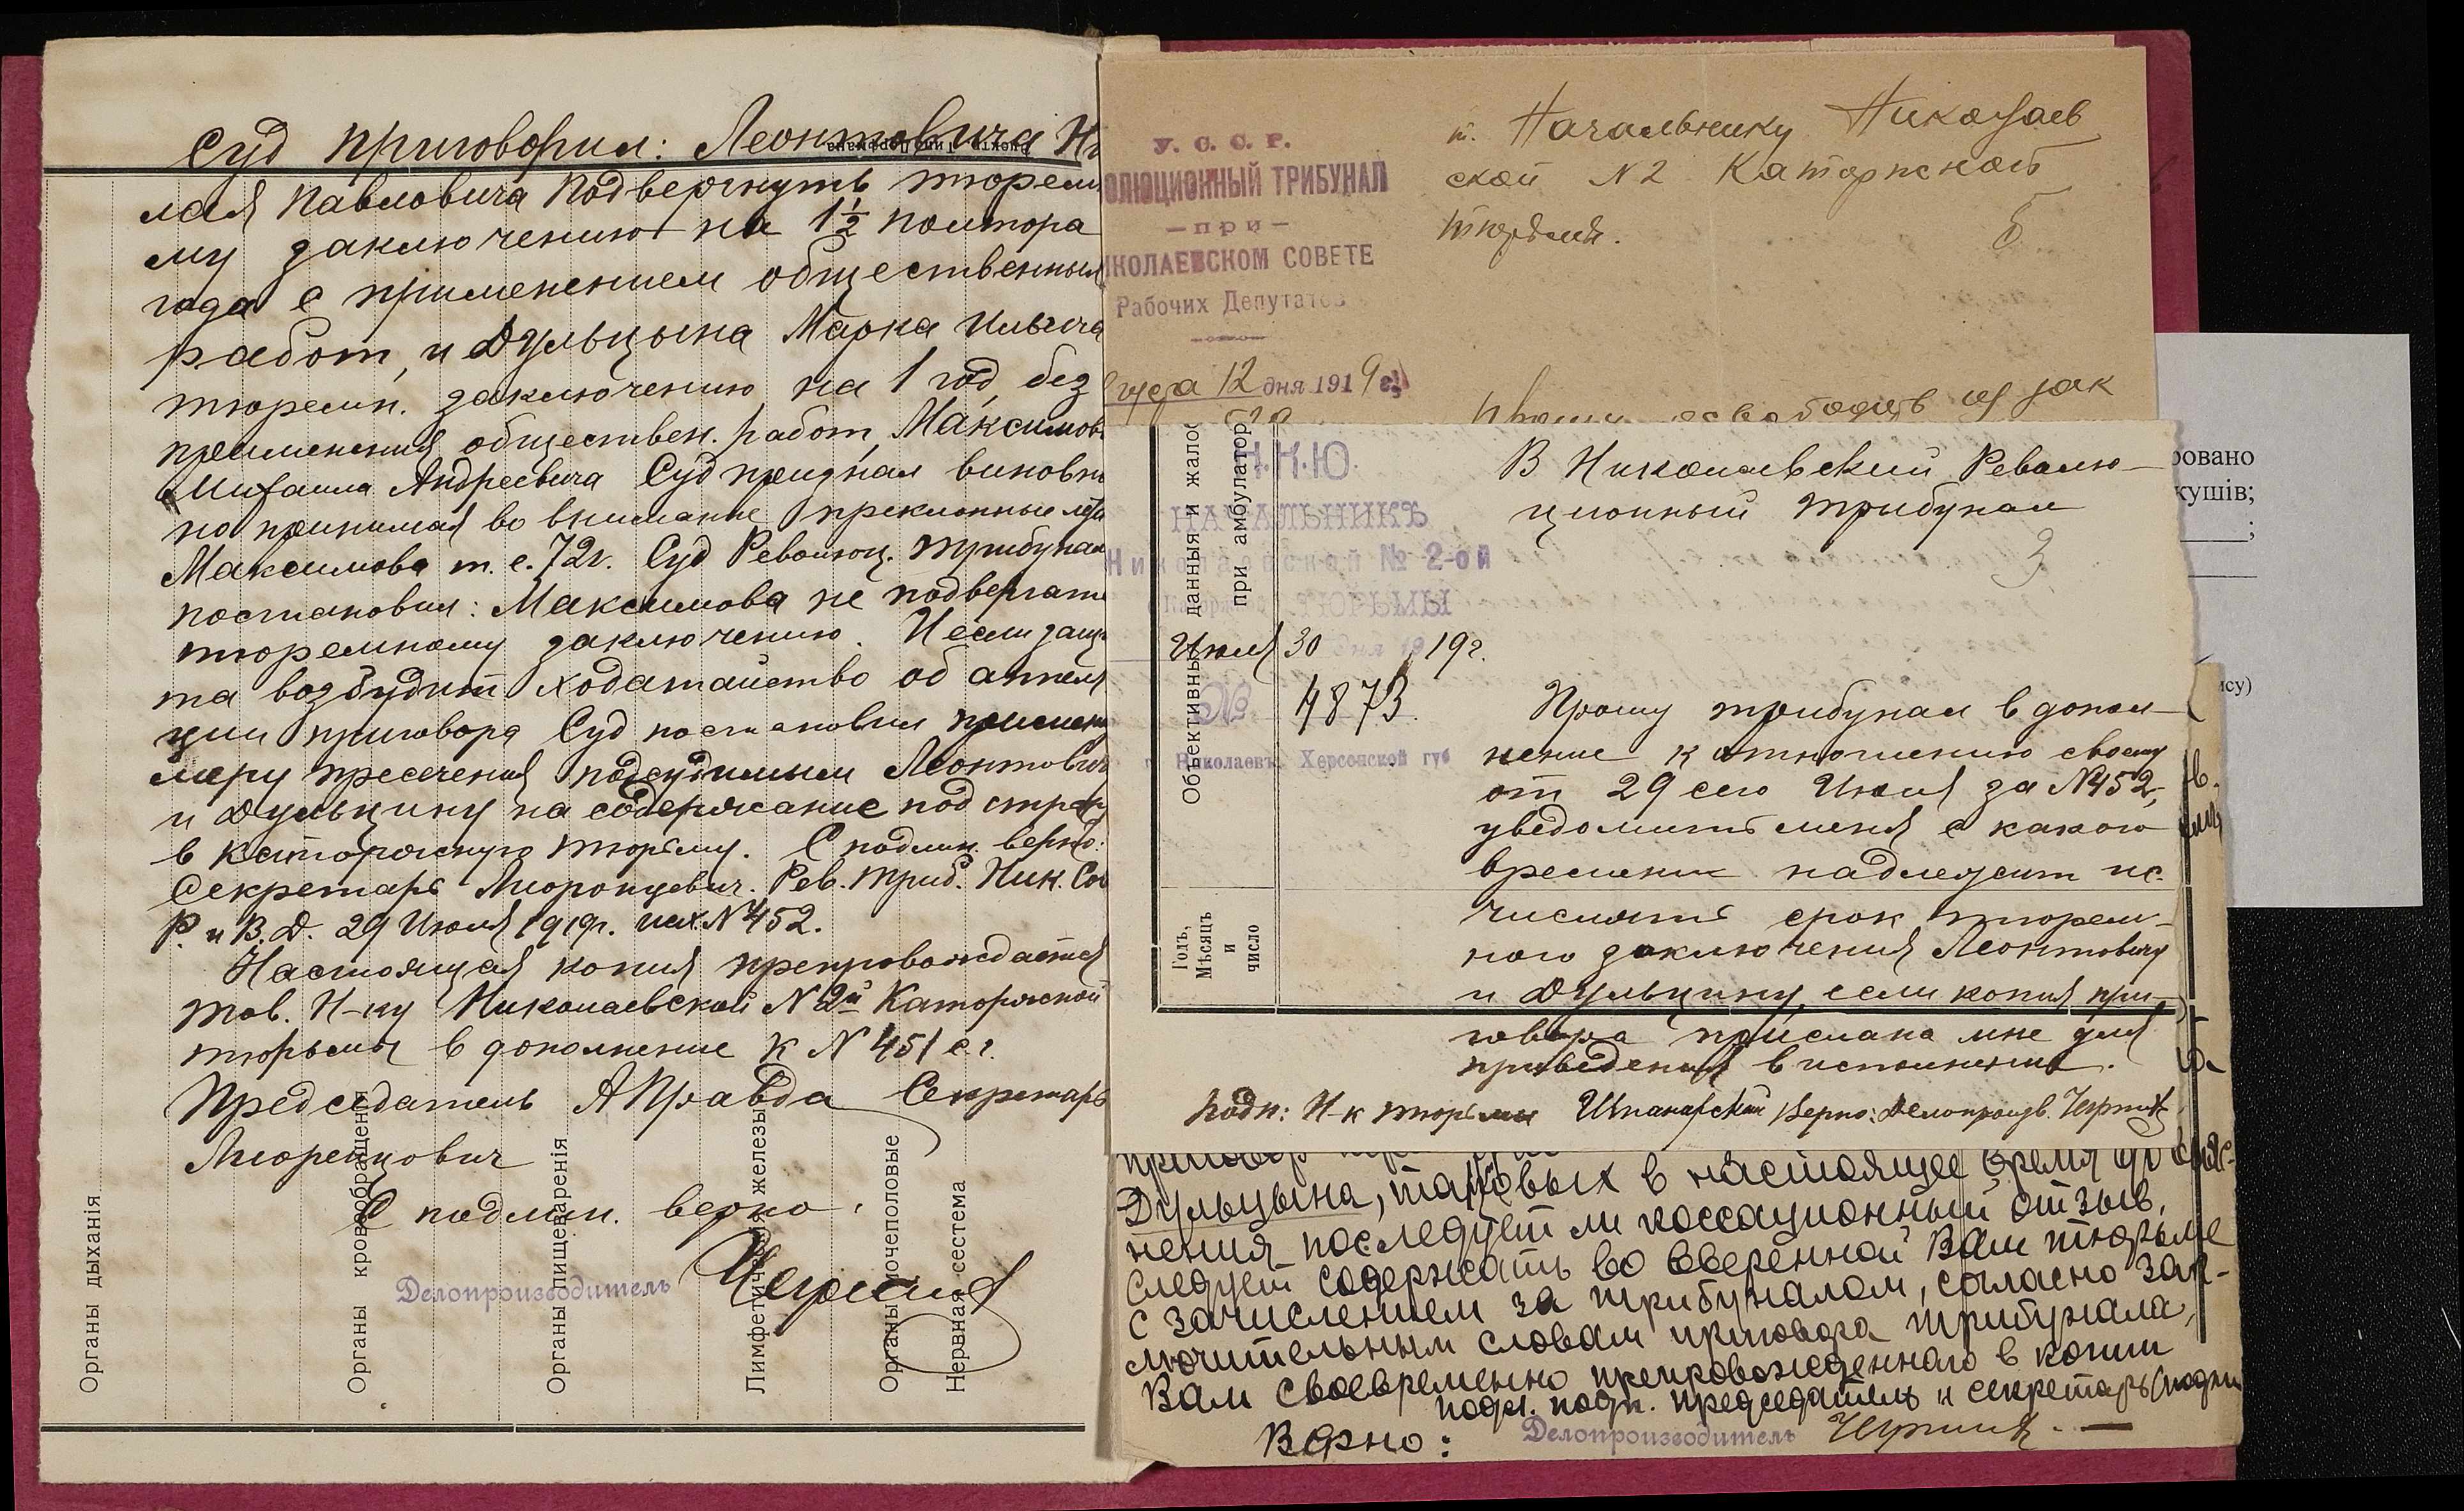 Суд приговорил: Леонтовича Ни
лая Павловича подвергнуть тюрем
му заключению на 1½ полтора
года с применением общественных
работ, и Дульцына Марка Ильича
тюремн. заключению на 1 год, без
применения обществен. работ, Максимов
Михаила Андреевича Суд признал виновн
но принимая во внимание преклонные
Максимова т. е. 72 г. Суд Революц. трибунал
постановил: Максимова не подвергать
тюремному заключению. И если защи
та возбудит ходатайство об аппеля
ции приговора Суд постановил
меру пресечения подсудимым Леонтович
и Дульцину на содержание под страж
в каторжную тюрьму. С подлин. верно:
Секретарь Рев. Триб. Ник. Сов
Р. и В. Д. 29 Июля 1919г. исх. N 452.
Настоящая копия препровождается
тов. Н-ку Николаевской N 2й Каторжской
тюрьмы в дополнение к N 451 с.г.
Председатель А Правда Секретарь
С подлин. верно:
Делопроизводитель
Органы дыханія
Органы кровообращенія
Органы пищеваренія
Лимфетическія железы
Органы мочеполовые
Нервная сестема
У. С. С. Р.
ОЛЮЦИОННЫЙ ТРИБУНАЛ
— при —
ИКОЛАЕВСКОМ СОВЕТЕ
Рабочих Депутатов
12 дня 1919 г.
т. Начальнику Николаев
ской N 2 Каторжской
тюрьмы.
5
освободить из зак
Н.К.Ю.
НАЧАЛЬНИКЪ
Николаевской № 2-ой
Каторжной ТЮРЬМЫ
Июля 30 дня 1919г.
№ 4873.
г. Николаевъ, Херсонской губ
Объективныя данныя и жалоб
при амбулатор
Годъ,
Мѣсяцъ
и
число
В Николаевский Револю-
ционный трибунал
3
Прошу трибунал в допол-
нение к отношению своему
от 29 сего Июля за N 452,
уведомить меня с какого
времени надлежит ис-
числять срок тюрем-
ного заключения Леонтовичу
и Дульцину, если копия при-
говора прислана мне для
приведения в исполнение.
Подп: Н-к тюрьмы Верно: Делопроизв.
Дульцына, таковых в настоящее время до
нения последует ли кассационный отзыв,
следует содержать во вверенной Вам тюрьме
с зачислением за трибуналом, согласно зак-
лючительным словам приговора трибунала,
Вам своевременно препровожденнаго в копии
подл. подп. председатель и секретарь (подпи
Верно: Делопроизводитель
ровано
кушів;
;
ису)